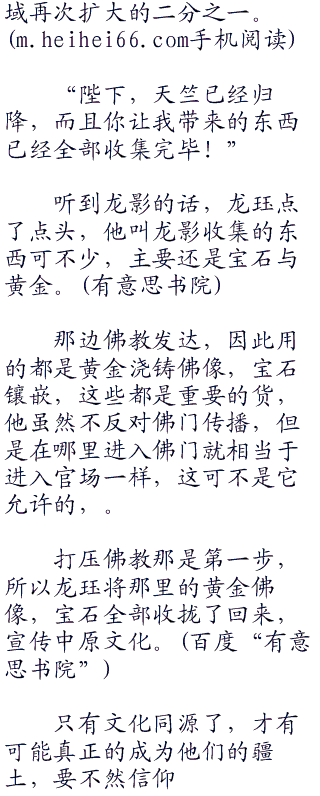 域再次扩大的二分之一。
(m.heihei66.com手机阅读)
“陛下，天竺已经归
降，而且你让我带来的东西
已经全部收集完毕！”
听到龙影的话，龙珏点
了点头，他叫龙影收集的东
西可不少，主要还是宝石与
黄金。(有意思书院)
那边佛教发达，因此用
的都是黄金浇铸佛像，宝石
镶嵌，这些都是重要的货，
他虽然不反对佛门传播，但
是在哪里进入佛门就相当于
进入官场一样，这可不是它
允许的，。
打压佛教那是第一步，
所以龙珏将那里的黄金佛
像，宝石全部收拢了回来，
宣传中原文化。(百度“有意
思书院”)
只有文化同源了，才有
可能真正的成为他们的疆
土，要不然信仰